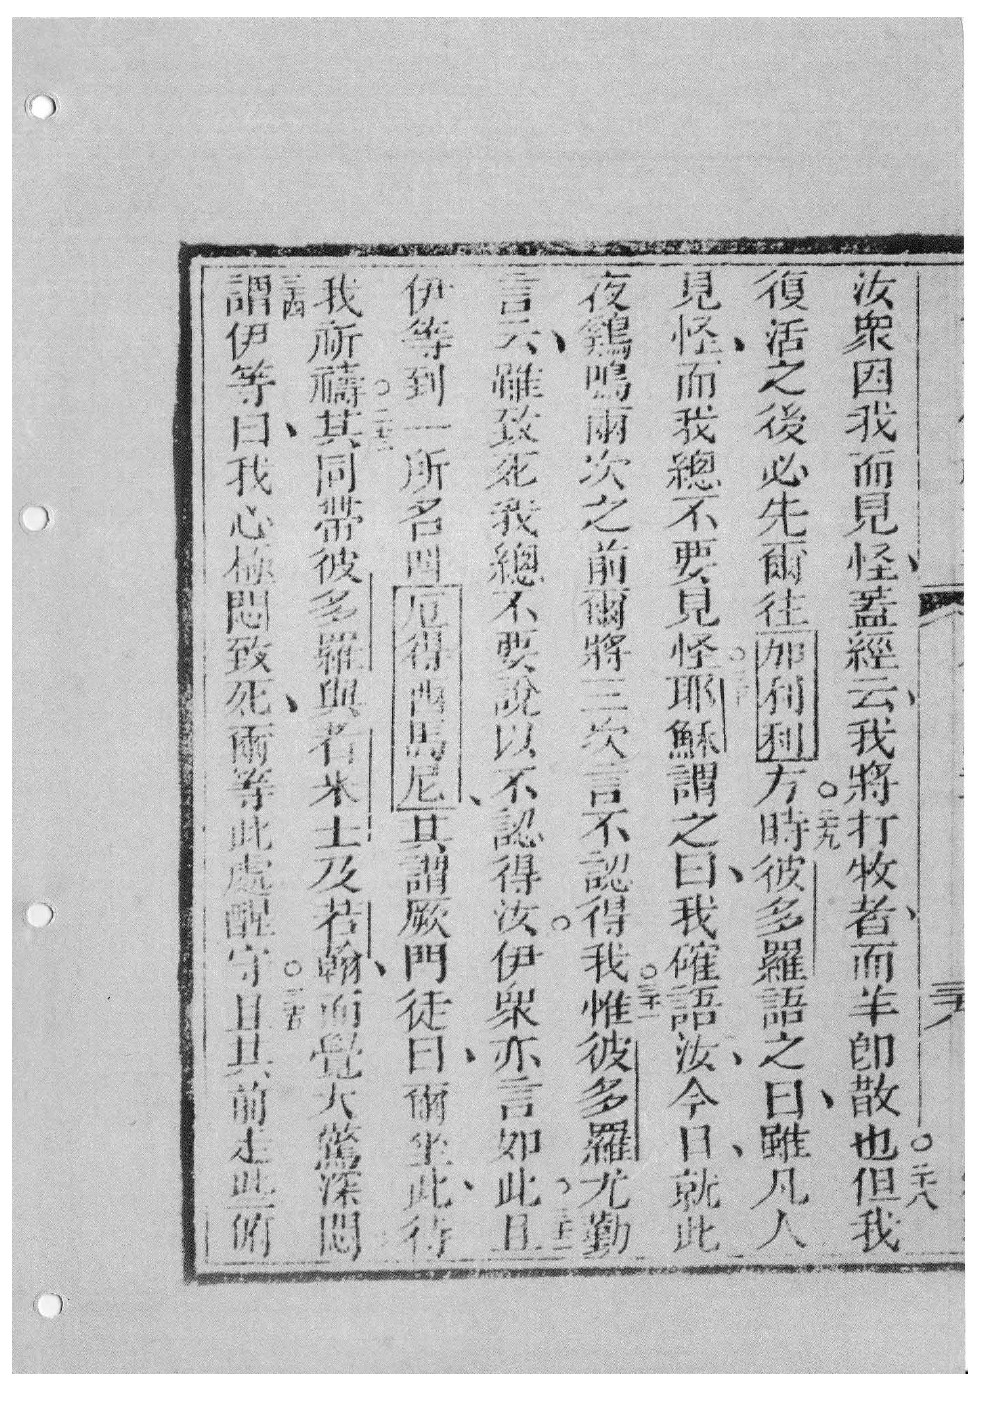 汝衆因我而見怪、蓋經云、我將打牧者、而羊卽散也○二十八但我
復活之後必先爾往加利利方○二十九時彼多羅語之曰、雖凡人
見怪、而我總不要見怪○三十耶穌謂之曰、我確語汝、今日、就此
夜鷄鳴兩次之前爾將三次言不認得我○三十一惟彼多羅尤勤
言云、雖致死我總不要說以不認得汝○伊衆亦言如此○三十二且
伊等到一所名叫厄得西馬尼、其謂厥門徒曰、爾坐此、待
我祈禱○三十三其同帶彼多羅與者米士及若翰、而覺大驚深悶
三十四謂伊等曰、我心極悶致死、爾等此處醒守○三十五且其前走些俯